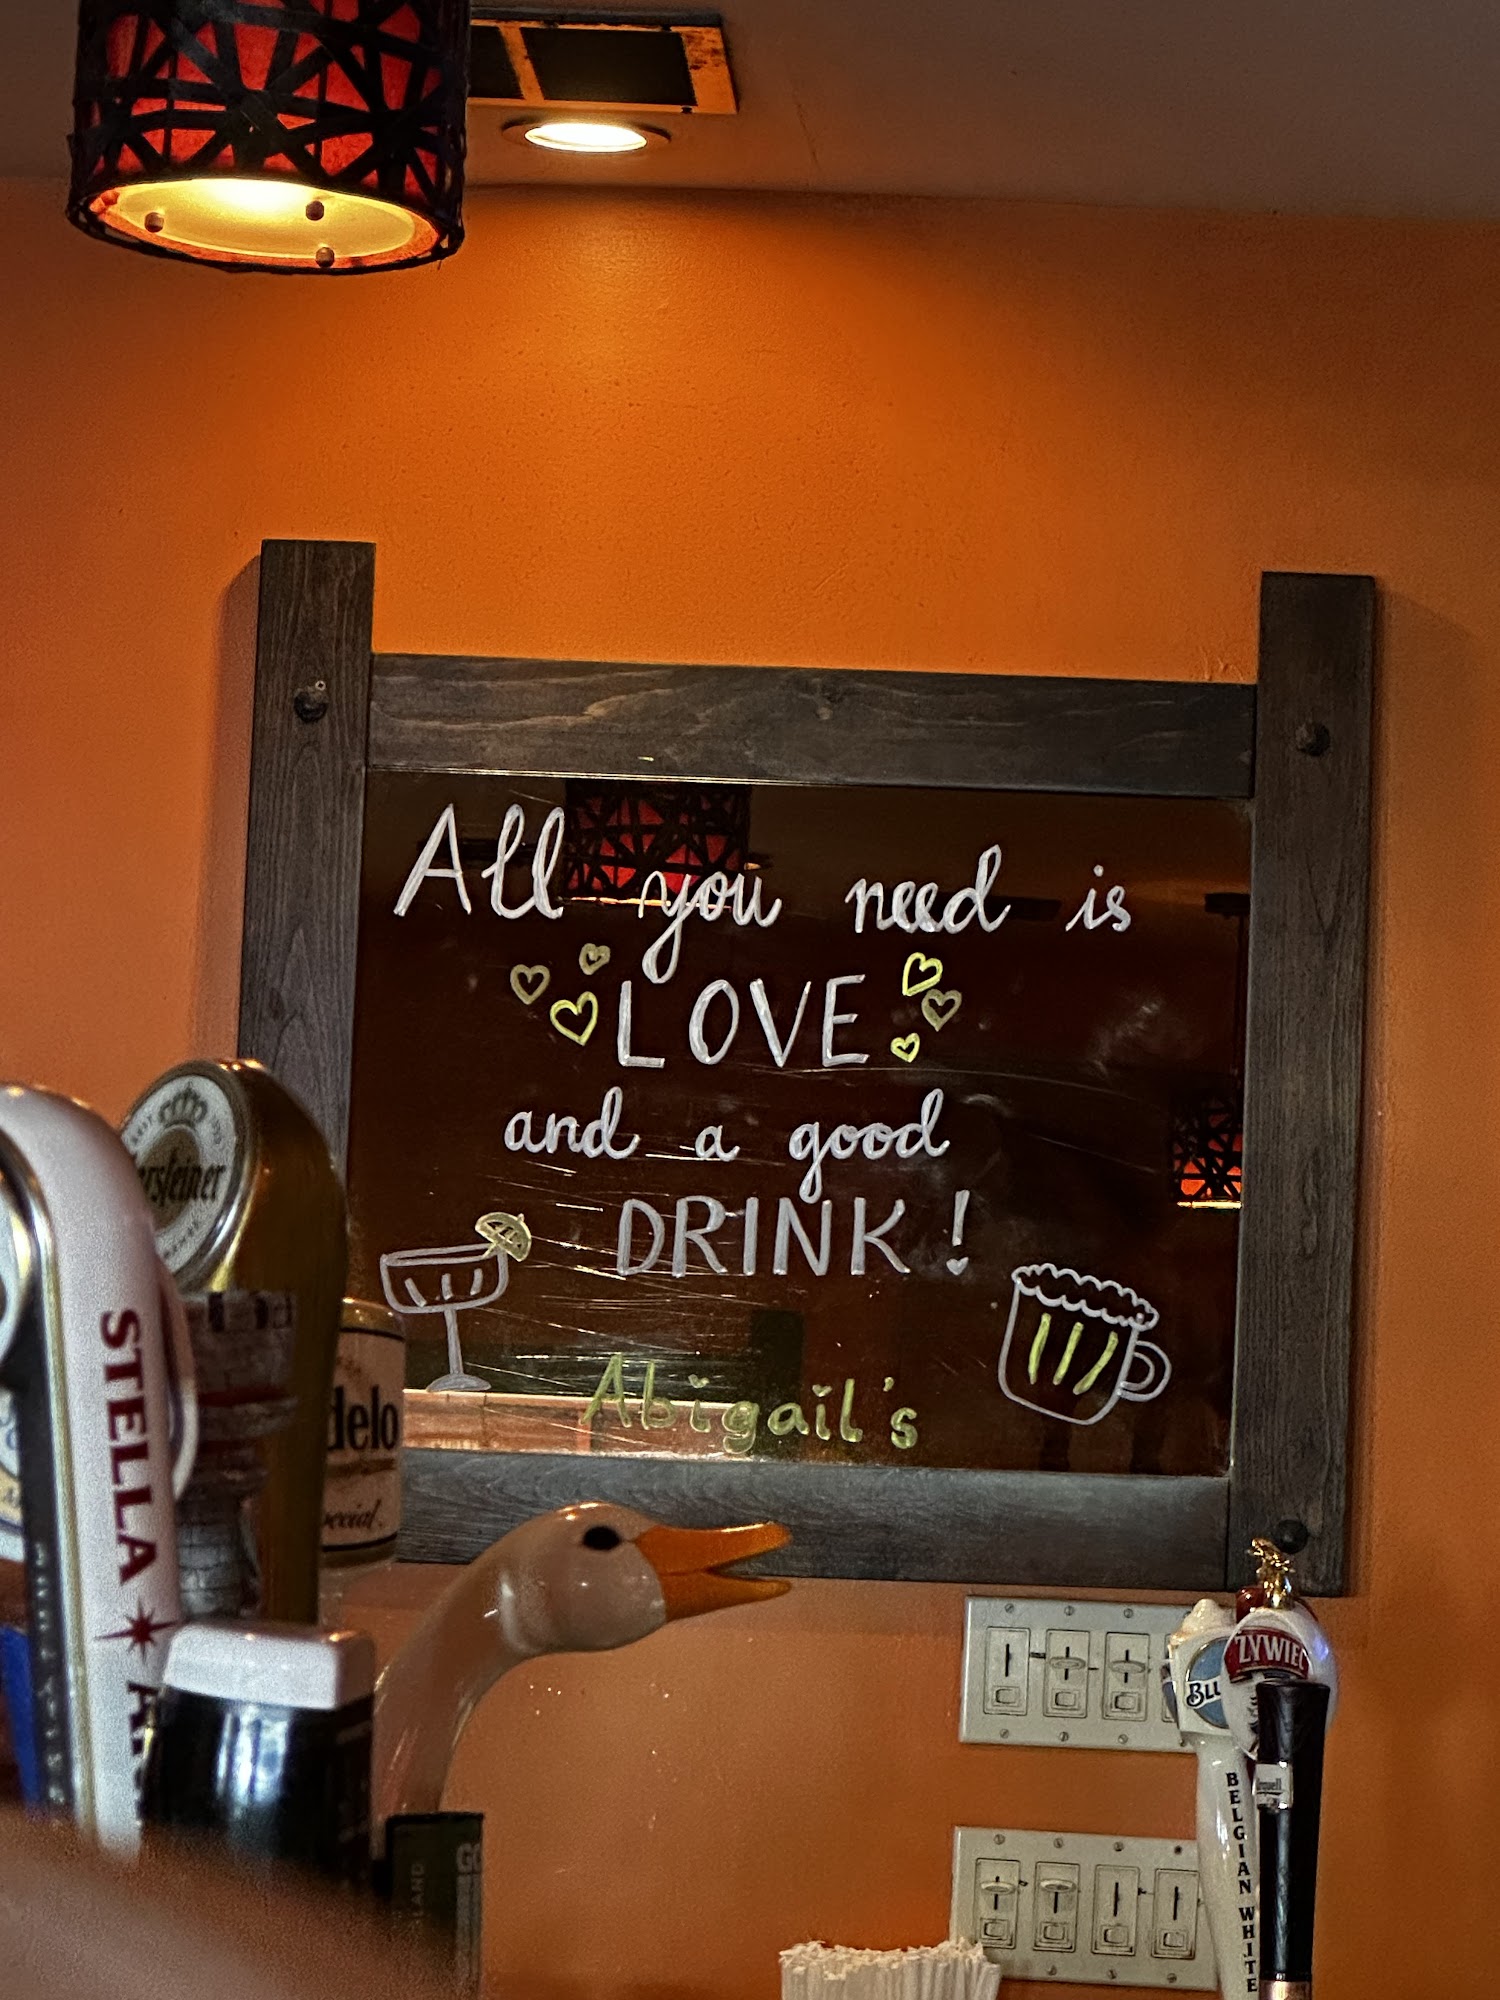 All you need is
LOVE
and a good
DRINK!
Abigail's
STELLA
AR
ersteiner
delo
pecial.
GO
LAND
BLU
ZYWIEC
BELGIAN WHITE